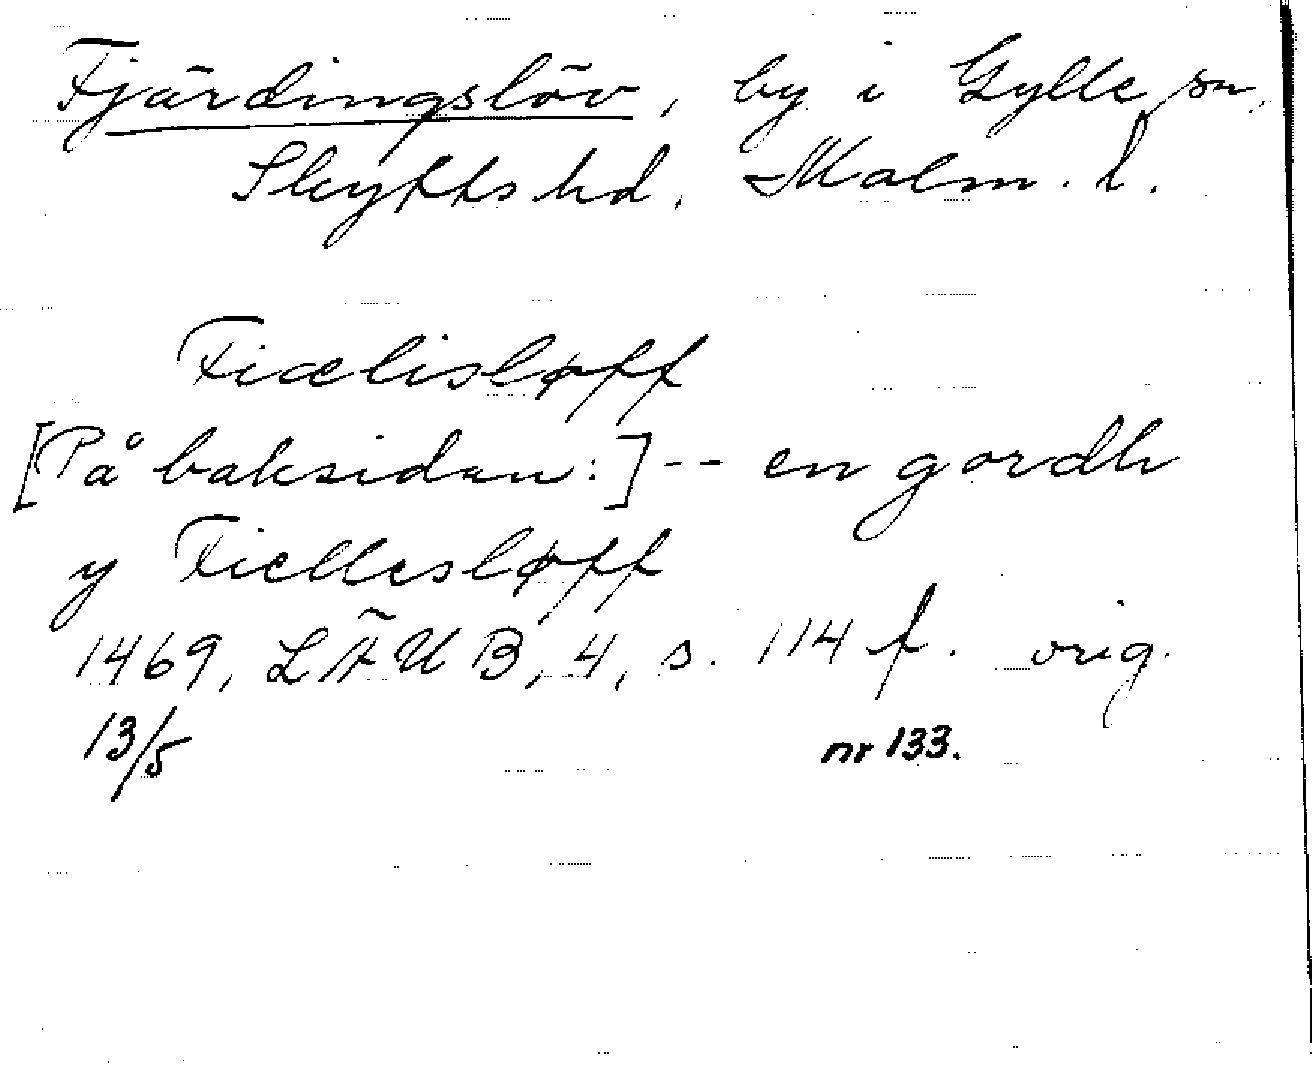 Fjärdingslöv, by i Gylle sn,
Skytts hd, Malm. l.
Fiælisløff
[På baksidan:] -- en gordh
y Fiellesløff
1469, LÄUB, 4, s. 114 f. orig.
13/5 nr 133.